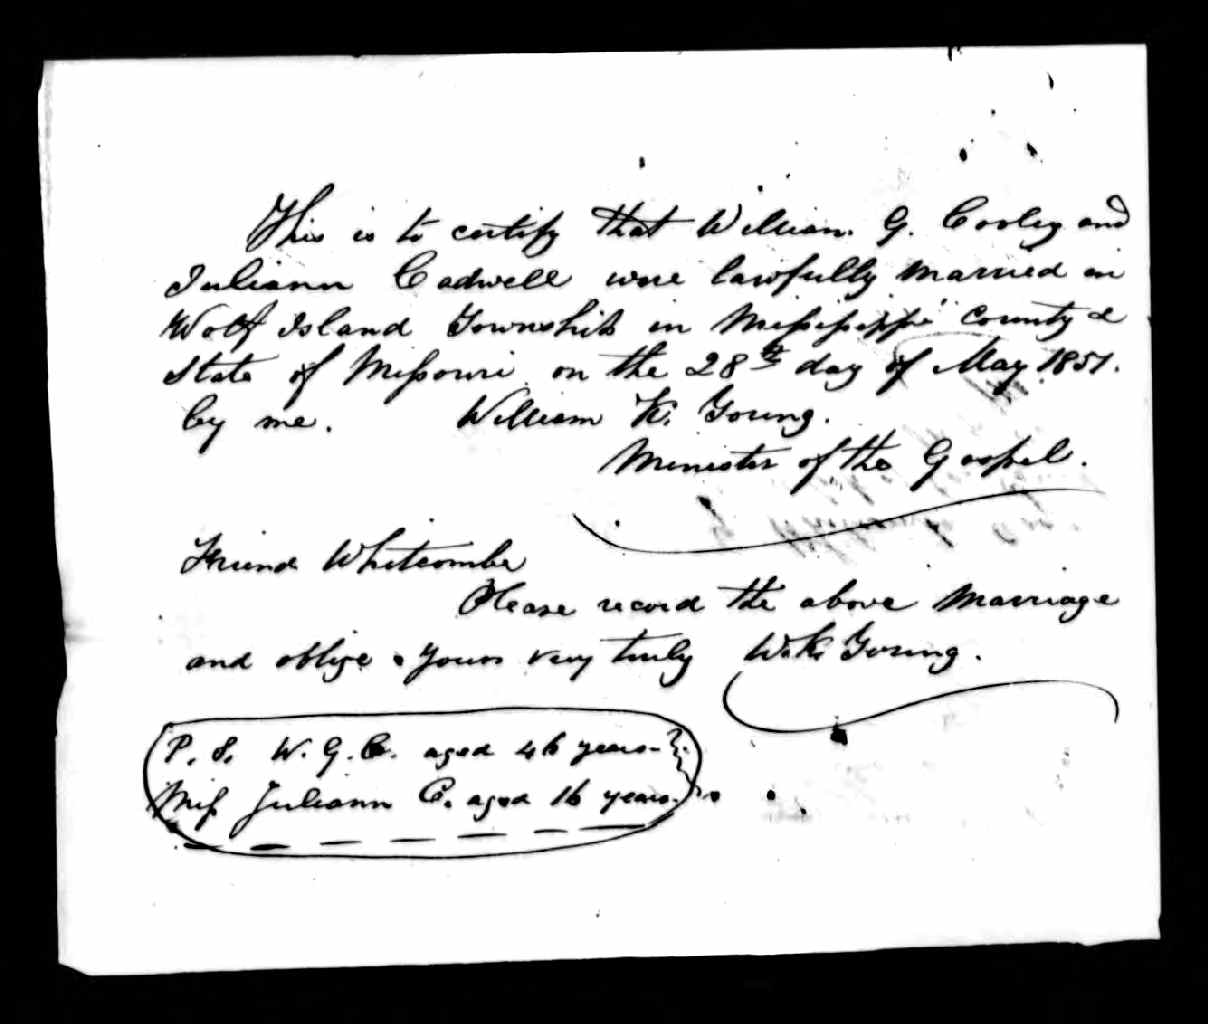 This is to certify that William. G. Cooley and
Juliann Cadwell were lawfully married in
Wolf Island Township in Missisippi County &
State of Missouri on the 28th day of May 1851.
by me. William K. Young.
Minister of the Gospel.
Friend Whitcombe
Please record the above Marriage
and oblige yours very truly Wm K Young.
P. S. W. G. C. aged 46 years
Miss Juliann C. aged 16 years.